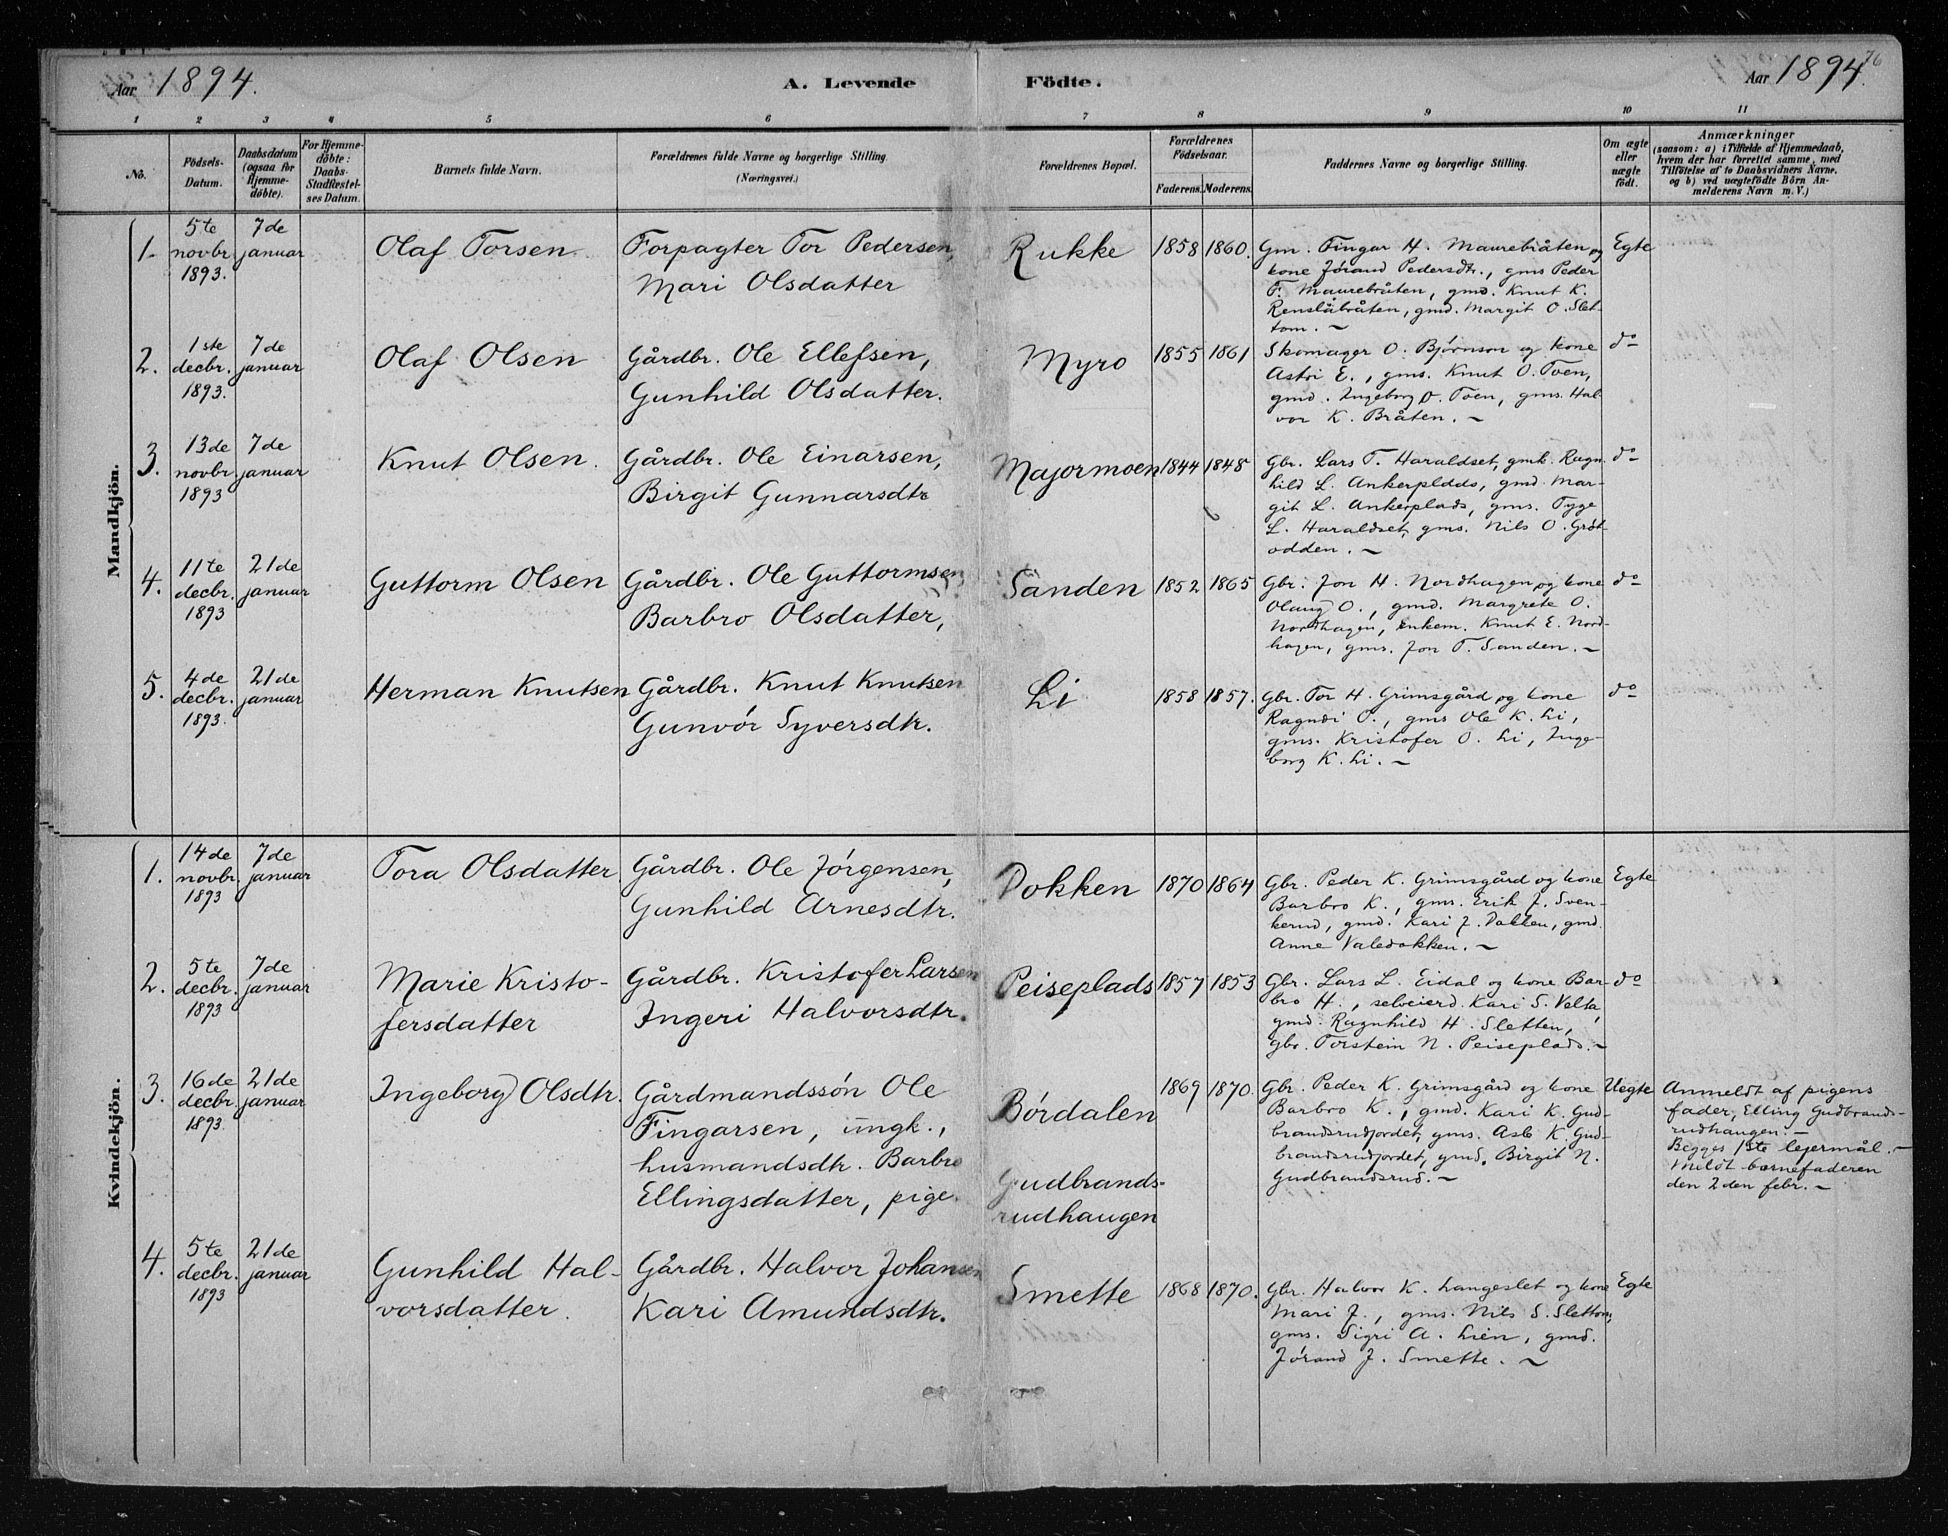 Aar 1894.
A. Levende Födte.
Aar 1894.
76
1 2 3 4 5 6 7 8 9 10 11
No.
Födsels-
Datum.
Daabsdatum
(ogsaa for
Hjemme-
döbte).
For Hjemme-
döbte:
Daabs-
Stadfæstel-
ses Datum.
Barnets fulde Navn.
Forældrenes fulde Navne og borgerlige Stilling.
(Næringsvei.)
Forældrenes Bopæl.
Forældrenes
Födselsaar.
Faderens. Moderens.
Faddernes Navne og borgerlige Stilling.
Om ægte
eller
uægte
födt.
Anmærkninger
(saasom: a) i Tilfælde af Hjemmedaab,
hvem der har forrettet samme, med
Tilföielse af to Daabsvidners Navne,
og b) ved uægtefödte Börn An-
melderens Navn m. V.)
Mandkjön.
1.
5te
novbr
1893.
7de
januar
Olaf Torsen
Forpagter Tor Pedersen,
Mari Olsdatter
Rukke
1858 1860.
Gm. Fingar H. Maurebråten og
kone Jørand Pedersdtr., gms Peder
F. Maurebråten, gmd. Knut K.
Renslåbråten, gmd. Margit O. Slet-
tom. ~
Egte
2.
1ste
decbr.
1893.
7de
januar
Olaf Olsen
Gårdbr. Ole Ellefsen,
Gunhild Olsdatter.
Myro
1855 1861
Skomager O. Bjørnson og kone
Astri E., gms. Knut O. Toen,
gmd. Ingeborg O. Toen, gms. Hal
vor K. Bråten. ~
do
3.
13de
novbr
1893
7de
januar
Knut Olsen.
Gårdbr. Ole Einarsen,
Birgit Gunnarsdtr
Majormoen
1844 1848
Gbr. Lars T. Haraldset, gmk. Ragn-
hild L. Ankerplads, gmd. Mar-
git L. Ankerplads, gms. Tyge
L. Haraldset, gms. Nils O. Grøt-
odden. ~
do
4.
11te
decbr.
1893
21de
januar
Guttorm Olsen
Gårdbr. Ole Guttormsen
Barbro Olsdatter,
Sanden
1852 1865
Gbr. Jon H. Nordhagen og kone
Olaug O., gmd. Margrete O.
Nordhagen, enkem. Knut E. Nord-
hagen, gms. Jon T. Sanden. ~
do
5.
4de
decbr.
1893.
21de
januar
Herman Knutsen
Gårdbr. Knut Knutsen
Gunvór Syversdtr.
Li
1858 1857.
Gbr. Tor H. Grimsgård og kone
Ragndi O., gms Ole K. Li,
gms. Kristofer O. Li, Inge-
borg K. Li. ~
do
Kvindekjön.
1.
14de
novbr.
1893
7de
januar
Tora Olsdatter
Gårdbr. Ole Jørgensen,
Gunhild Arnesdtr.
Dokken
1870 1864
Gbr. Peder K. Grimsgård og kone
Barbro K., gms. Erik J. Sven-
kerud, gmd. Kari J. Dokken, gmd.
Anne Valedokken. ~
Egte
2.
5te
decbr.
1893
7de
januar
Marie Kristo-
fersdatter
Gårdbr. Kristofer Larsen
Ingeri Halvorsdtr.
Peiseplads
1857 1853
Gbr. Lars L. Eidal og kone Bar-
bro H., selveierd. Kari S. Velta,
gmd. Ragnhild H. Sletten,
gbr. Torstein N. Peiseplads. ~
do
3.
16de
decbr.
1893.
21de
januar
Ingeborg Olsdtr.
Gårdmandssøn Ole
Fingarsen, ungk.,
husmandsdtr. Barbro
Ellingsdatter, pige.
Børdalen
Gudbrands-
rudhaugen
1869 1870.
Gbr. Peder K. Grimsgård og kone
Barbro K., gmd. Kari K. Gud-
brandsrudjordet, gms. Asle K. Gud-
brandsrudjordet, gmd. Birgit N.
Gudbrandsrud. ~
Uegte
Anmeldt af pigens
fader, Elling Gudbrands-
rudhaugen. ~
Begges 1ste lejermål. ~
Meldt barnefaderen
den 2den febr. ~
4.
5te
decbr.
1893
21de
januar
Gunhild Hal-
vorsdatter.
Gårdbr. Halvor Johansen
Kari Amundsdtr.
Smette
1868 1870.
Gbr. Halvor K. Langeslet og kone
Mari J., gms. Nils S. Slettom,
gms. Sigri A. Lien, gmd.
Jørand J. Smette. ~
Egte